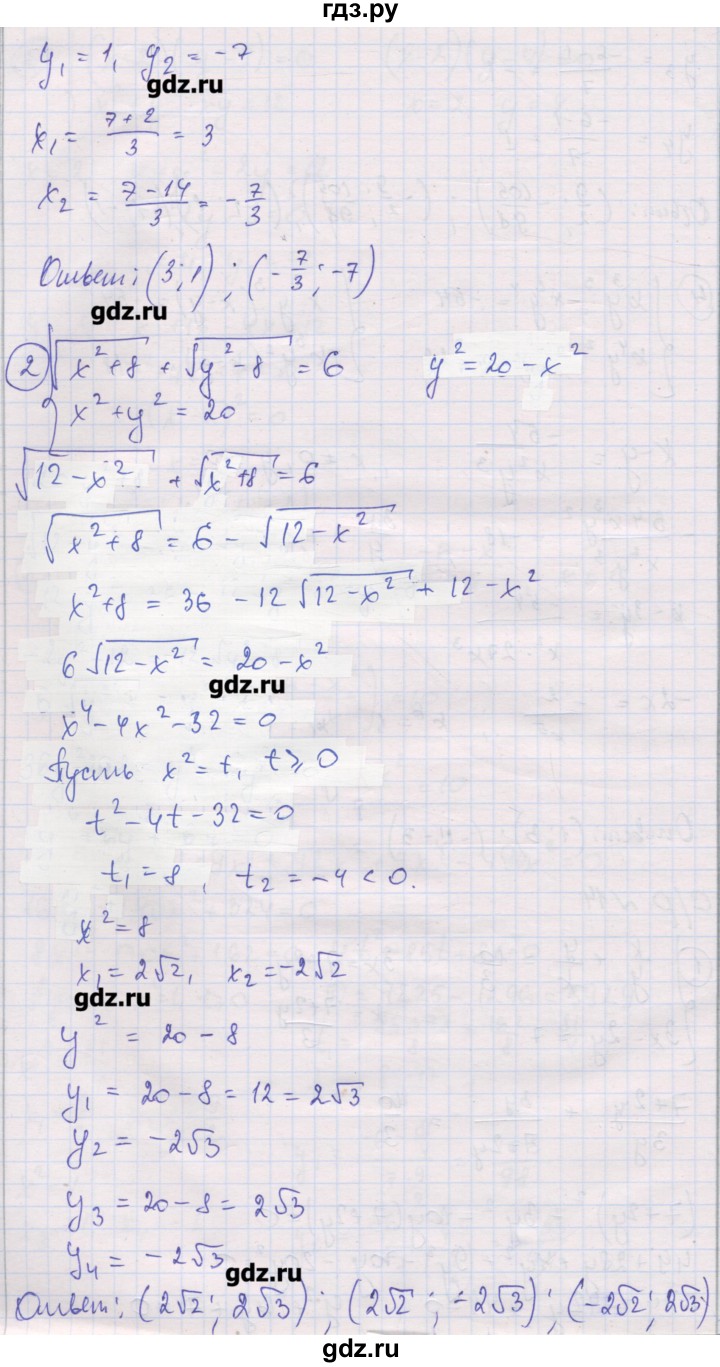 гдз.ру
y₁ = 1, y₂ = -7
gdz.ru
x₁ = (7+2)/3 = 3
x₂ = (7-14)/3 = -7/3
Ответ: (3; 1); (-7/3; -7)
gdz.ru
② { √(x²+8) + √(y²-8) = 6    y² = 20 - x²
x² + y² = 20
√(12-x²) + √(x²+8) = 6
√(x²+8) = 6 - √(12-x²)
x²+8 = 36 - 12√(12-x²) + 12 - x²
6√(12-x²) = 20 - x²
gdz.ru
x⁴ - 4x² - 32 = 0
Пусть x² = t, t ⩾ 0
t² - 4t - 32 = 0
t₁ = 8, t₂ = -4 < 0.
x² = 8
x₁ = 2√2, x₂ = -2√2
gdz.ru
y² = 20 - 8
y₁ = 20 - 8 = 12 = 2√3
y₂ = -2√3
y₃ = 20 - 8 = 2√3
y₄ = -2√3
gdz.ru
Ответ: (2√2; 2√3); (2√2; -2√3); (-2√2; 2√3)
gdz.ru